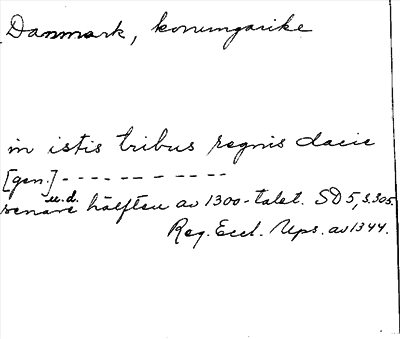 Danmark, konungarike
in istis tribus regnis dacie
[gen.] - - - - - - - - - -
u.d.
senare hälften av 1300-talet. SD 5, s. 305.
Reg. Eccl. Ups. av 1344.